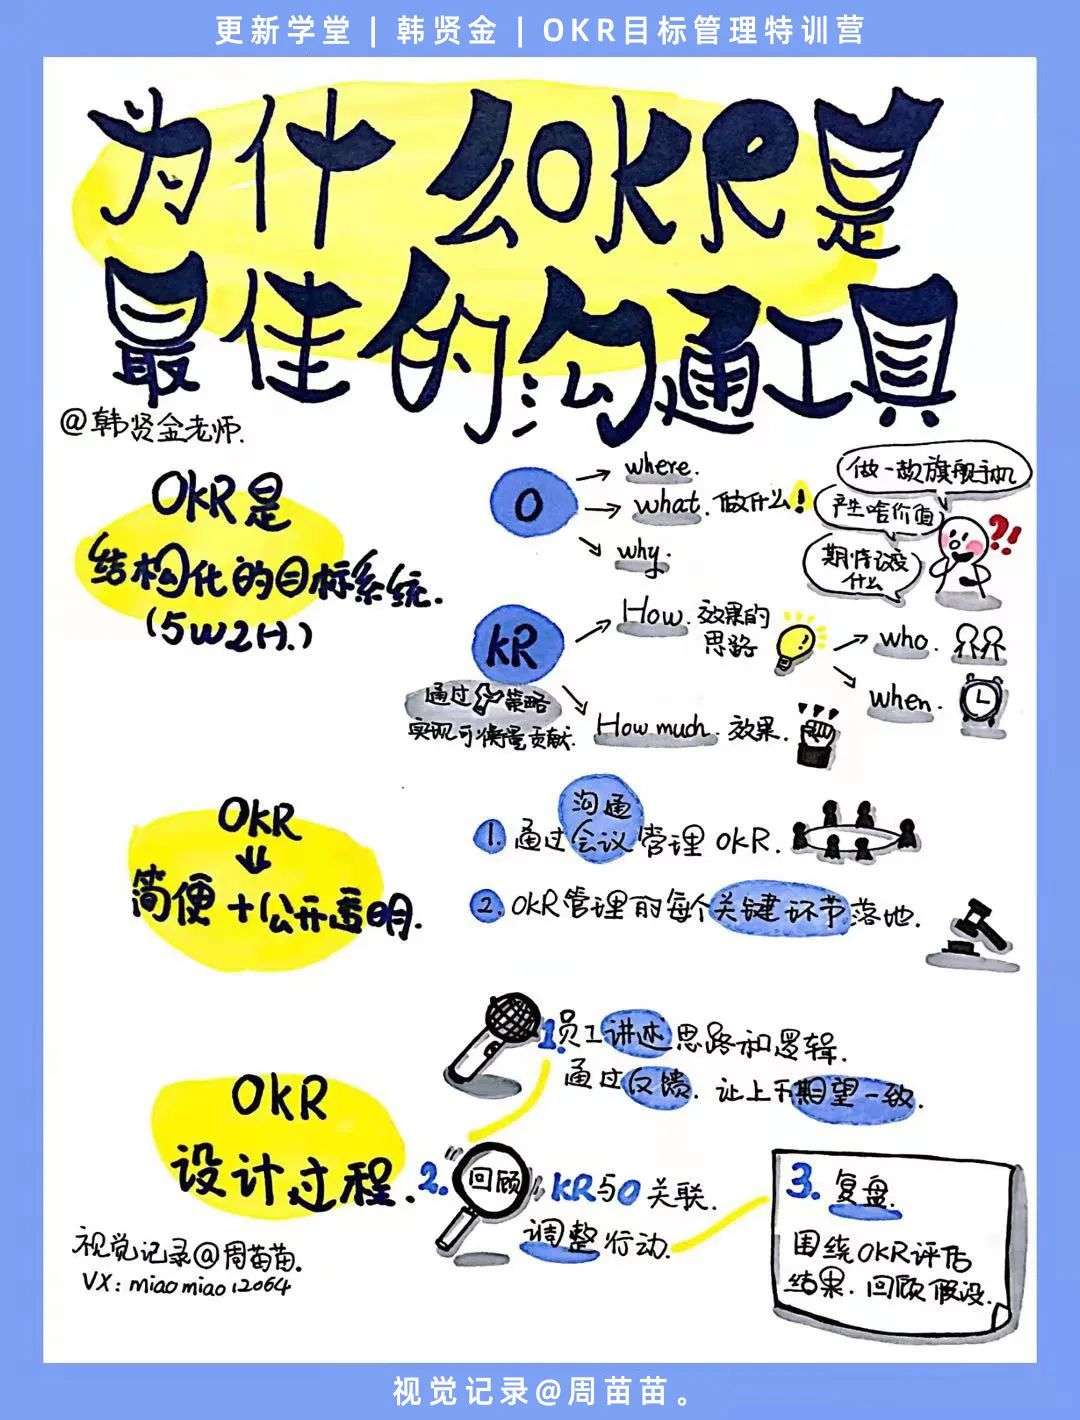 更新学堂 | 韩贤金 | OKR目标管理特训营
为什么OKR是
最佳的沟通工具
@韩贤金老师.
OKR是
结构化的目标系统.
(5W2H.)
O
where.
what. 做什么!
why.
做一款旗舰手机
产生啥价值
期待改变什么
?!
KR
通过 策略
实现可衡量贡献.
How. 效果的
思路
who.
when.
How much. 效果.
OKR
简便+公开透明.
1. 通过沟通会议管理OKR.
2. OKR管理的每个关键环节落地.
OKR
设计过程.
1. 员工讲述思路和逻辑.
通过反馈. 让上下期望一致.
2. 回顾 KR与O关联.
调整行动.
3. 复盘.
围绕OKR评估
结果. 回顾假设.
视觉记录@周苗苗.
VX: miaomiao12064
视觉记录@周苗苗。